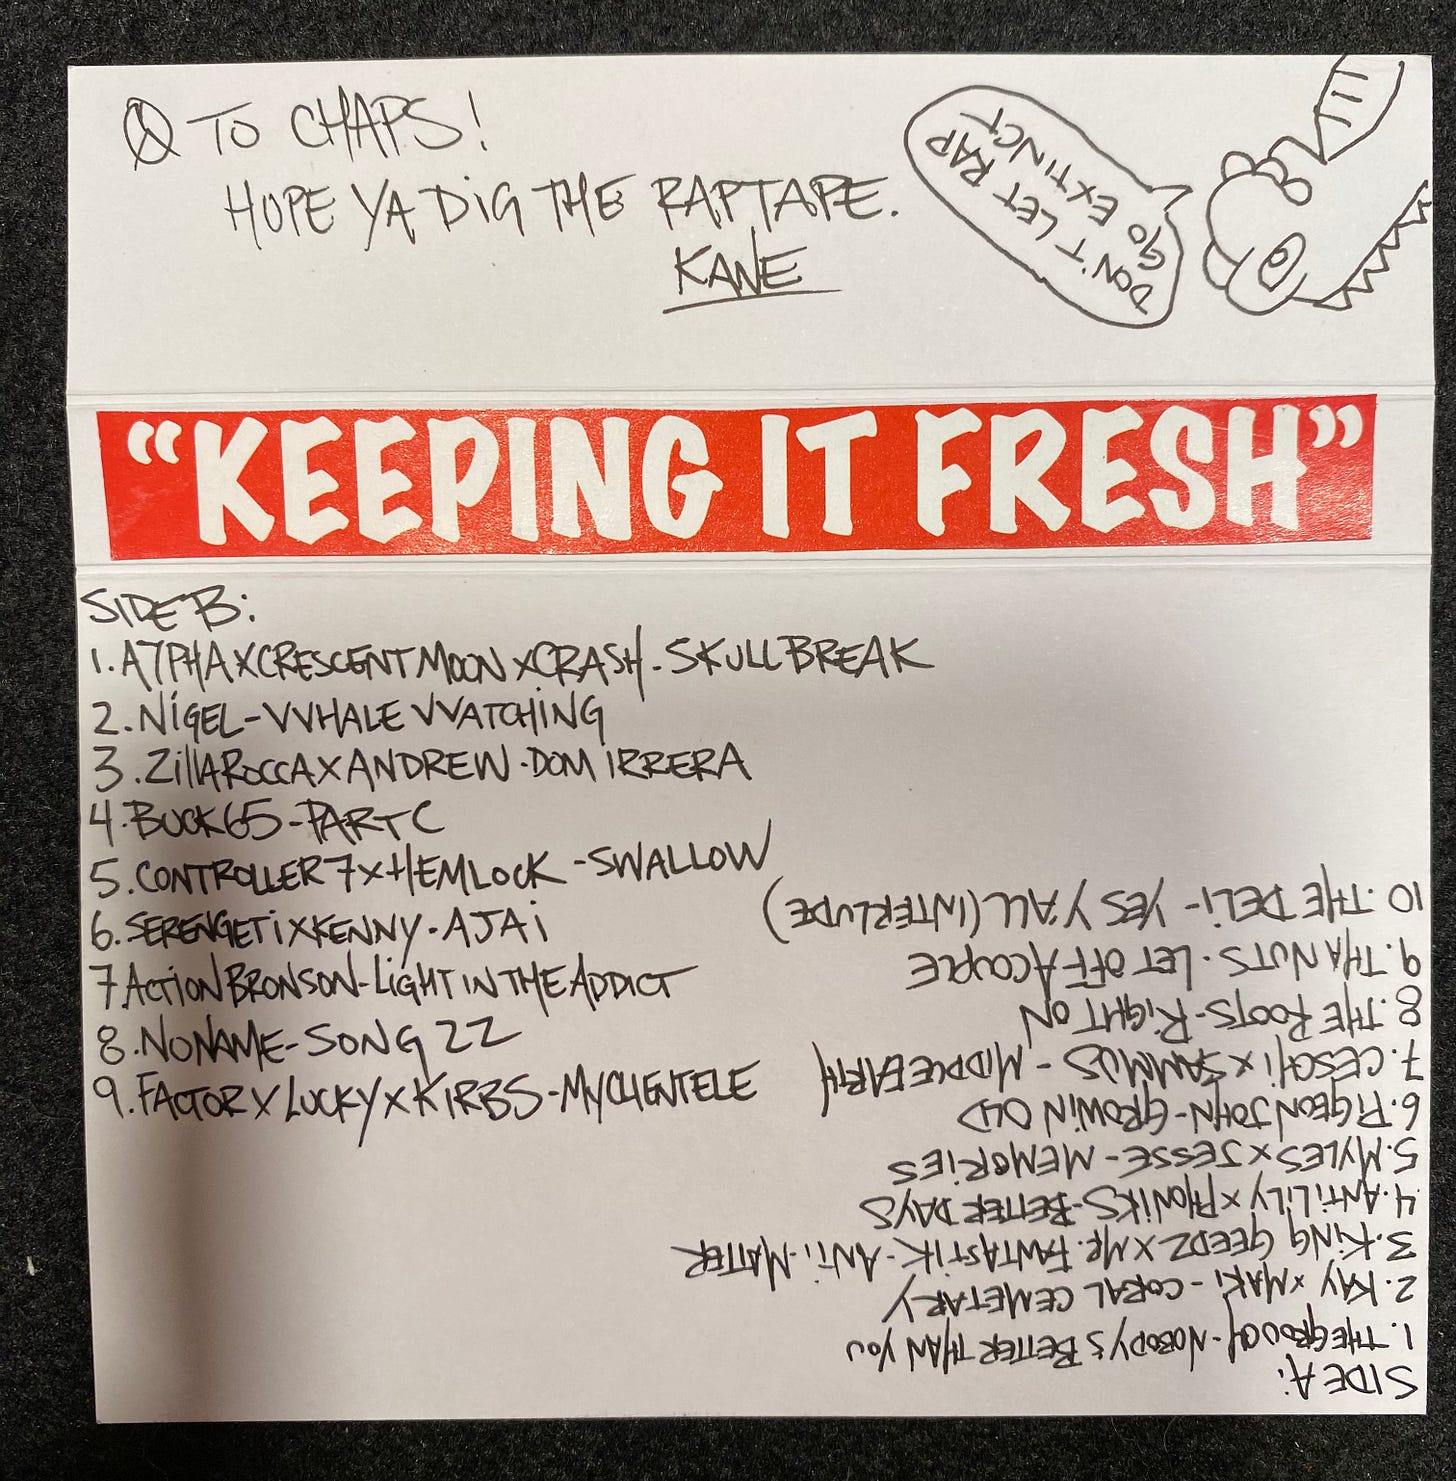 TO CHAPS!
HOPE YA DIG THE RAPTAPE.
KANE
DON'T LET RAP
GO EXTINCT
"KEEPING IT FRESH"
SIDE B:
1. A7PHA X CRESCENT MOON X CRASH - SKULL BREAK
2. NIGEL - VVHALE VVATCHING
3. ZILLA ROCCA X ANDREW - DOM IRRERA
4. BUCK 65 - PART C
5. CONTROLLER 7 X HEMLOCK - SWALLOW
6. SERENGETI X KENNY - AJAI
7 ACTION BRONSON - LIGHT IN THE ADDICT
8. NONAME - SONG 22
9. FACTOR X LUCKY X KIRBS - MY CLIENTELE
SIDE A:
1. THE GROUCH - NOBODY'S BETTER THAN YOU
2. KAY X MAKI - CORAL CEMETARY
3. KING GEEDZ X MR. FANTASTIK - ANTI-MATTER
4. ANTI LILY X PHONIKS - BETTER DAYS
5. MYLES X JESSE - MEMORIES
6. PIGEON JOHN - GROWIN OLD
7. CESCHI X SAMMUS - MIDDLE EARTH
8. THE ROOTS - RIGHT ON
9. THA NUTS - LET OFF A COUPLE
10. THE DELI - YES Y'ALL (INTERLUDE)